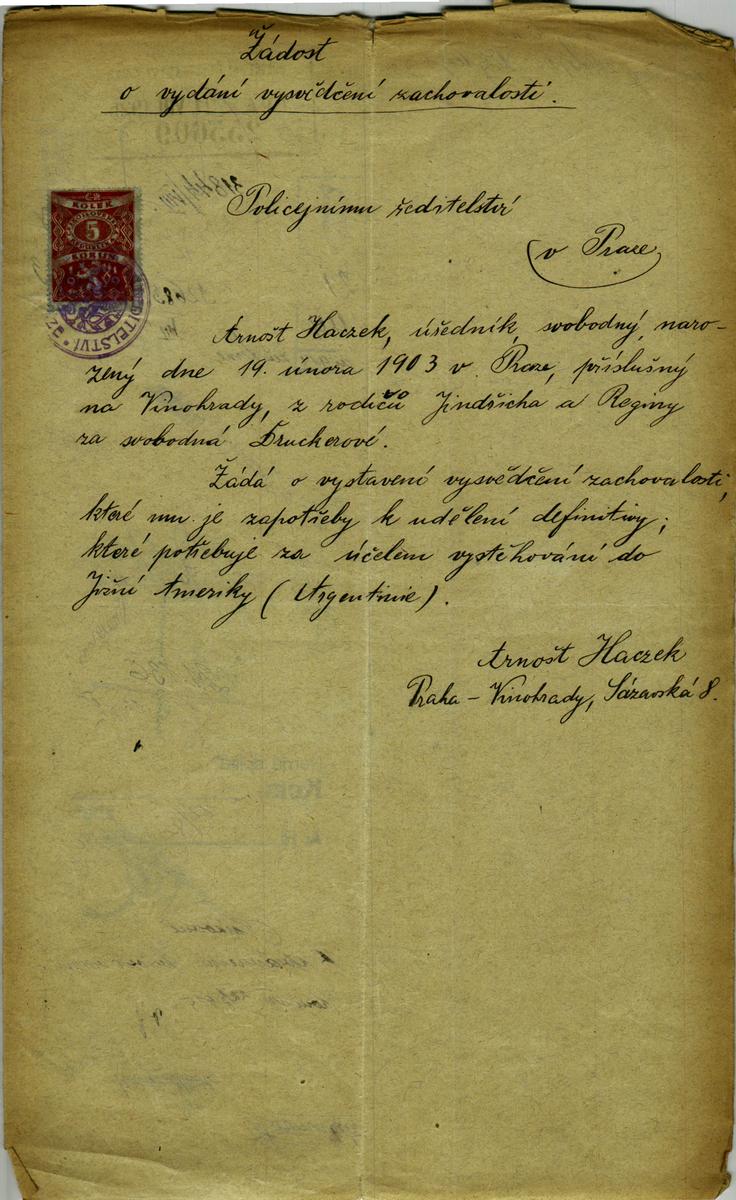 Žádost
o vydání vysvědčení zachovalosti.
KOLEK
5
KORUN
ŘEDITELSTVÍ
Policejnímu ředitelství
v Praze
Arnošt Haczek, úředník, svobodný, naro-
zený dne 19. února 1903 v Praze, příslušný
na Vinohrady, z rodičů Jindřicha a Reginy
za svobodná Druckerové.
Žádá o vystavení vysvědčení zachovalosti,
které mu je zapotřeby k udělení definitivy;
které potřebuje za účelem vystěhování do
Jižní Ameriky (Argentinie).
Arnošt Haczek
Praha - Vinohrady, Sázavská 8.